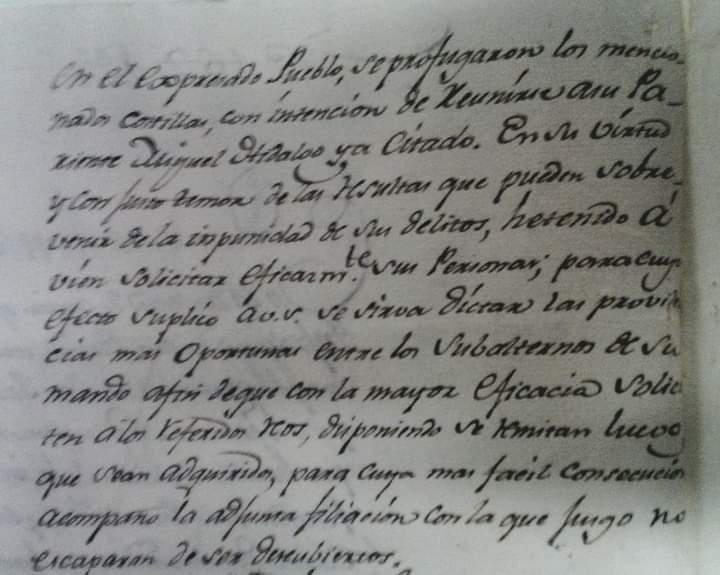 en el expresado Pueblo, se profugaron los mencio-
nados Costillas, con intención de Reunirse asu Pa-
riente Miguel Hidalgo ya Citado. En su virtud
y con justo temor de las resultas que pueden sobre-
venir de la impunidad de sus delitos, he tenido á
vien solicitar eficazm.te sus Personas; para cuyo
efecto suplico a v.s. se sirva dictar las providen
cias mas Oportunas entre los Subalternos de su
mando afin deque con la mayor eficacia Solici
ten alos referidos reos, disponiendo se remitan luego
que sean adquiridos, para cuya mas facil consecución
acompaño la adjunta filiación con la que juzgo no
escaparan de ser descubiertos.